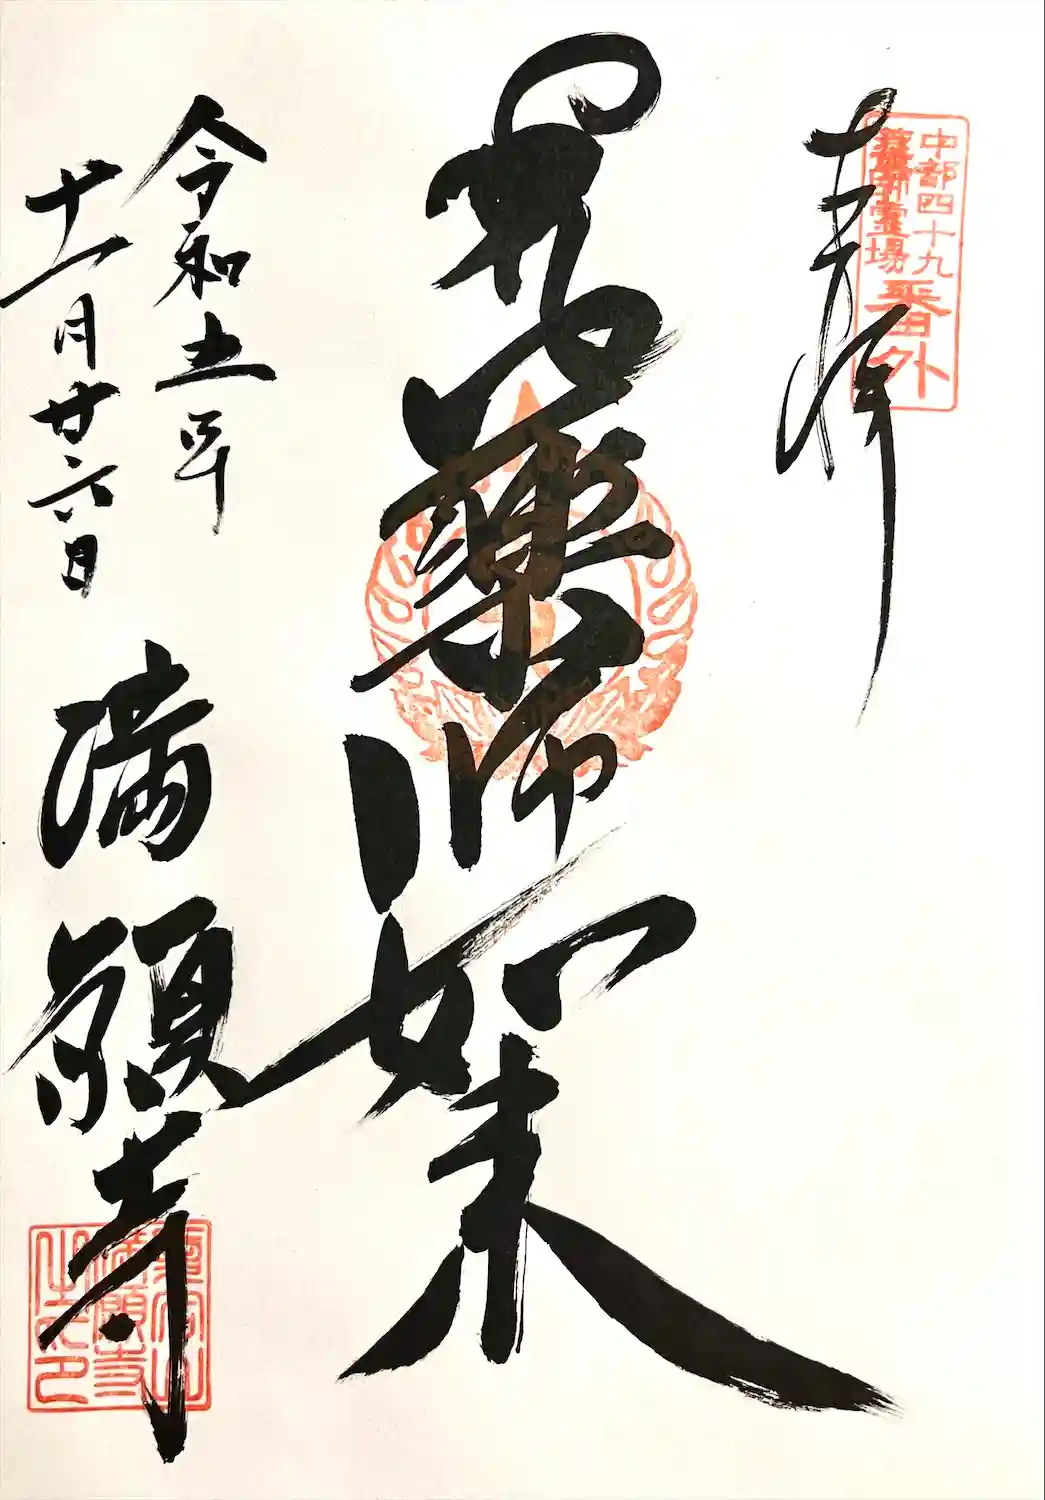 奉拝
中部四十九
薬師霊場
番外
薬師如来
令和五年
十一月廿六日
満願寺
満願寺
之印